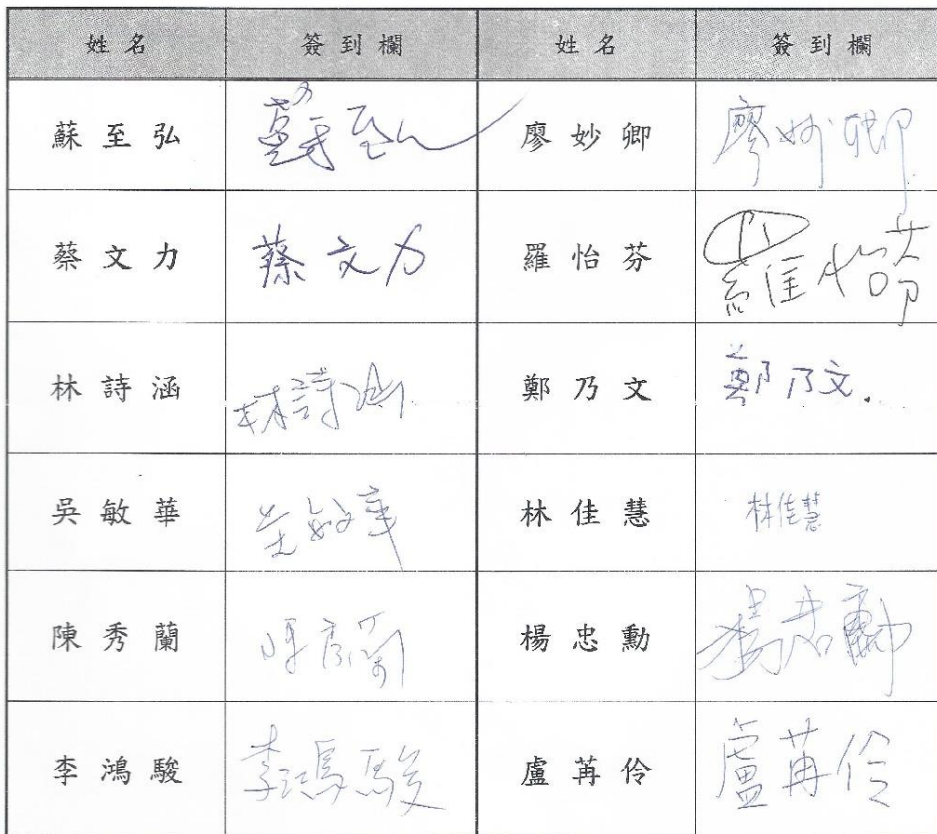 姓名 簽到欄 姓名 簽到欄
蘇至弘 蘇至弘 廖妙卿 廖妙卿
蔡文力 蔡文力 羅怡芬 羅怡芬
林詩涵 林詩涵 鄭乃文 鄭乃文.
吳敏華 吳敏華 林佳慧 林佳慧
陳秀蘭 陳秀蘭 楊忠勳 楊忠勳
李鴻駿 李鴻駿 盧苒伶 盧苒伶